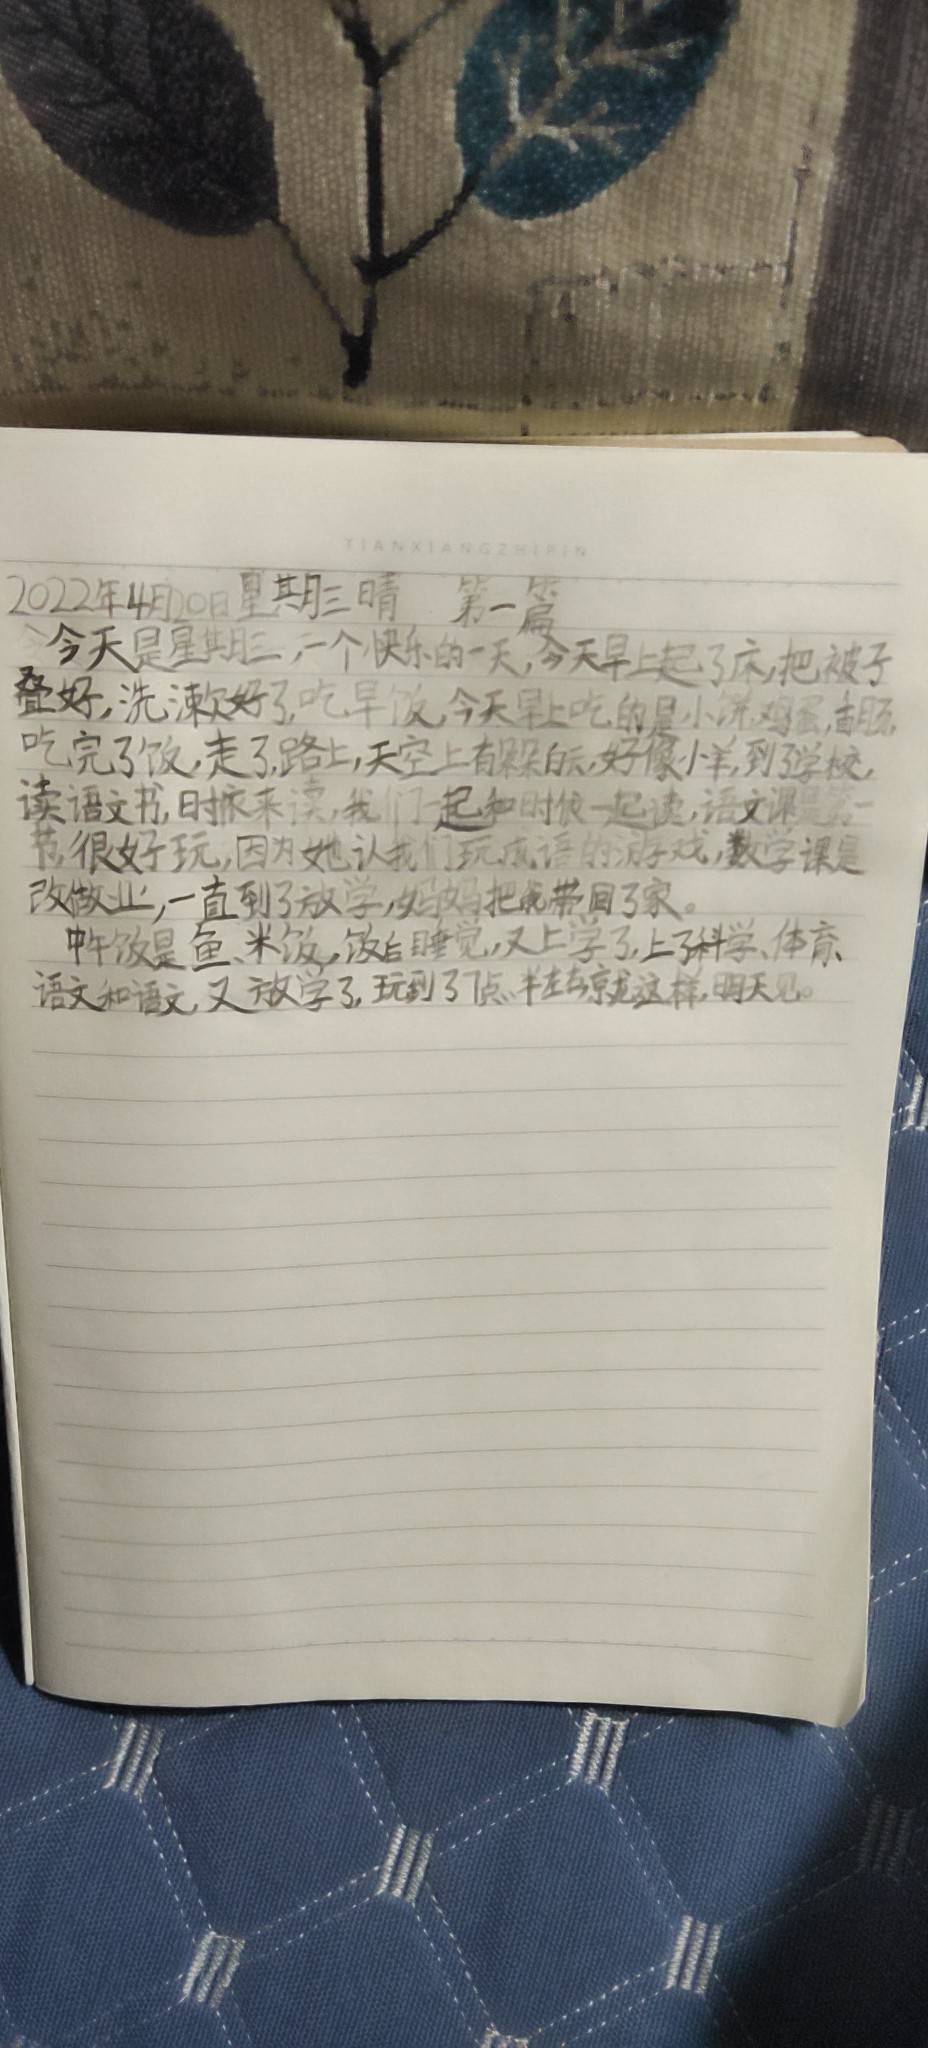 TIANXIANGZHIPIN
2022年4月20日星期三晴 第一篇
今天是星期三,一个快乐的一天,今天早上起了床,把被子
叠好,洗漱好了,吃早饭,今天早上吃的是小饼,鸡蛋,香肠,
吃完了饭,走了,路上,天空上有朵朵白云,好像小羊,到了学校,
读语文书,时候来读,我们一起和时候一起读,语文课是第一
节,很好玩,因为她认我们玩成语的游戏,数学课是
改做业,一直到了放学,妈妈把我带回了家。
中午饭是鱼、米饭,饭后睡觉,又上学了,上了科学、体育、
语文和语文,又放学了,玩到了7点半左右就这样,明天见。